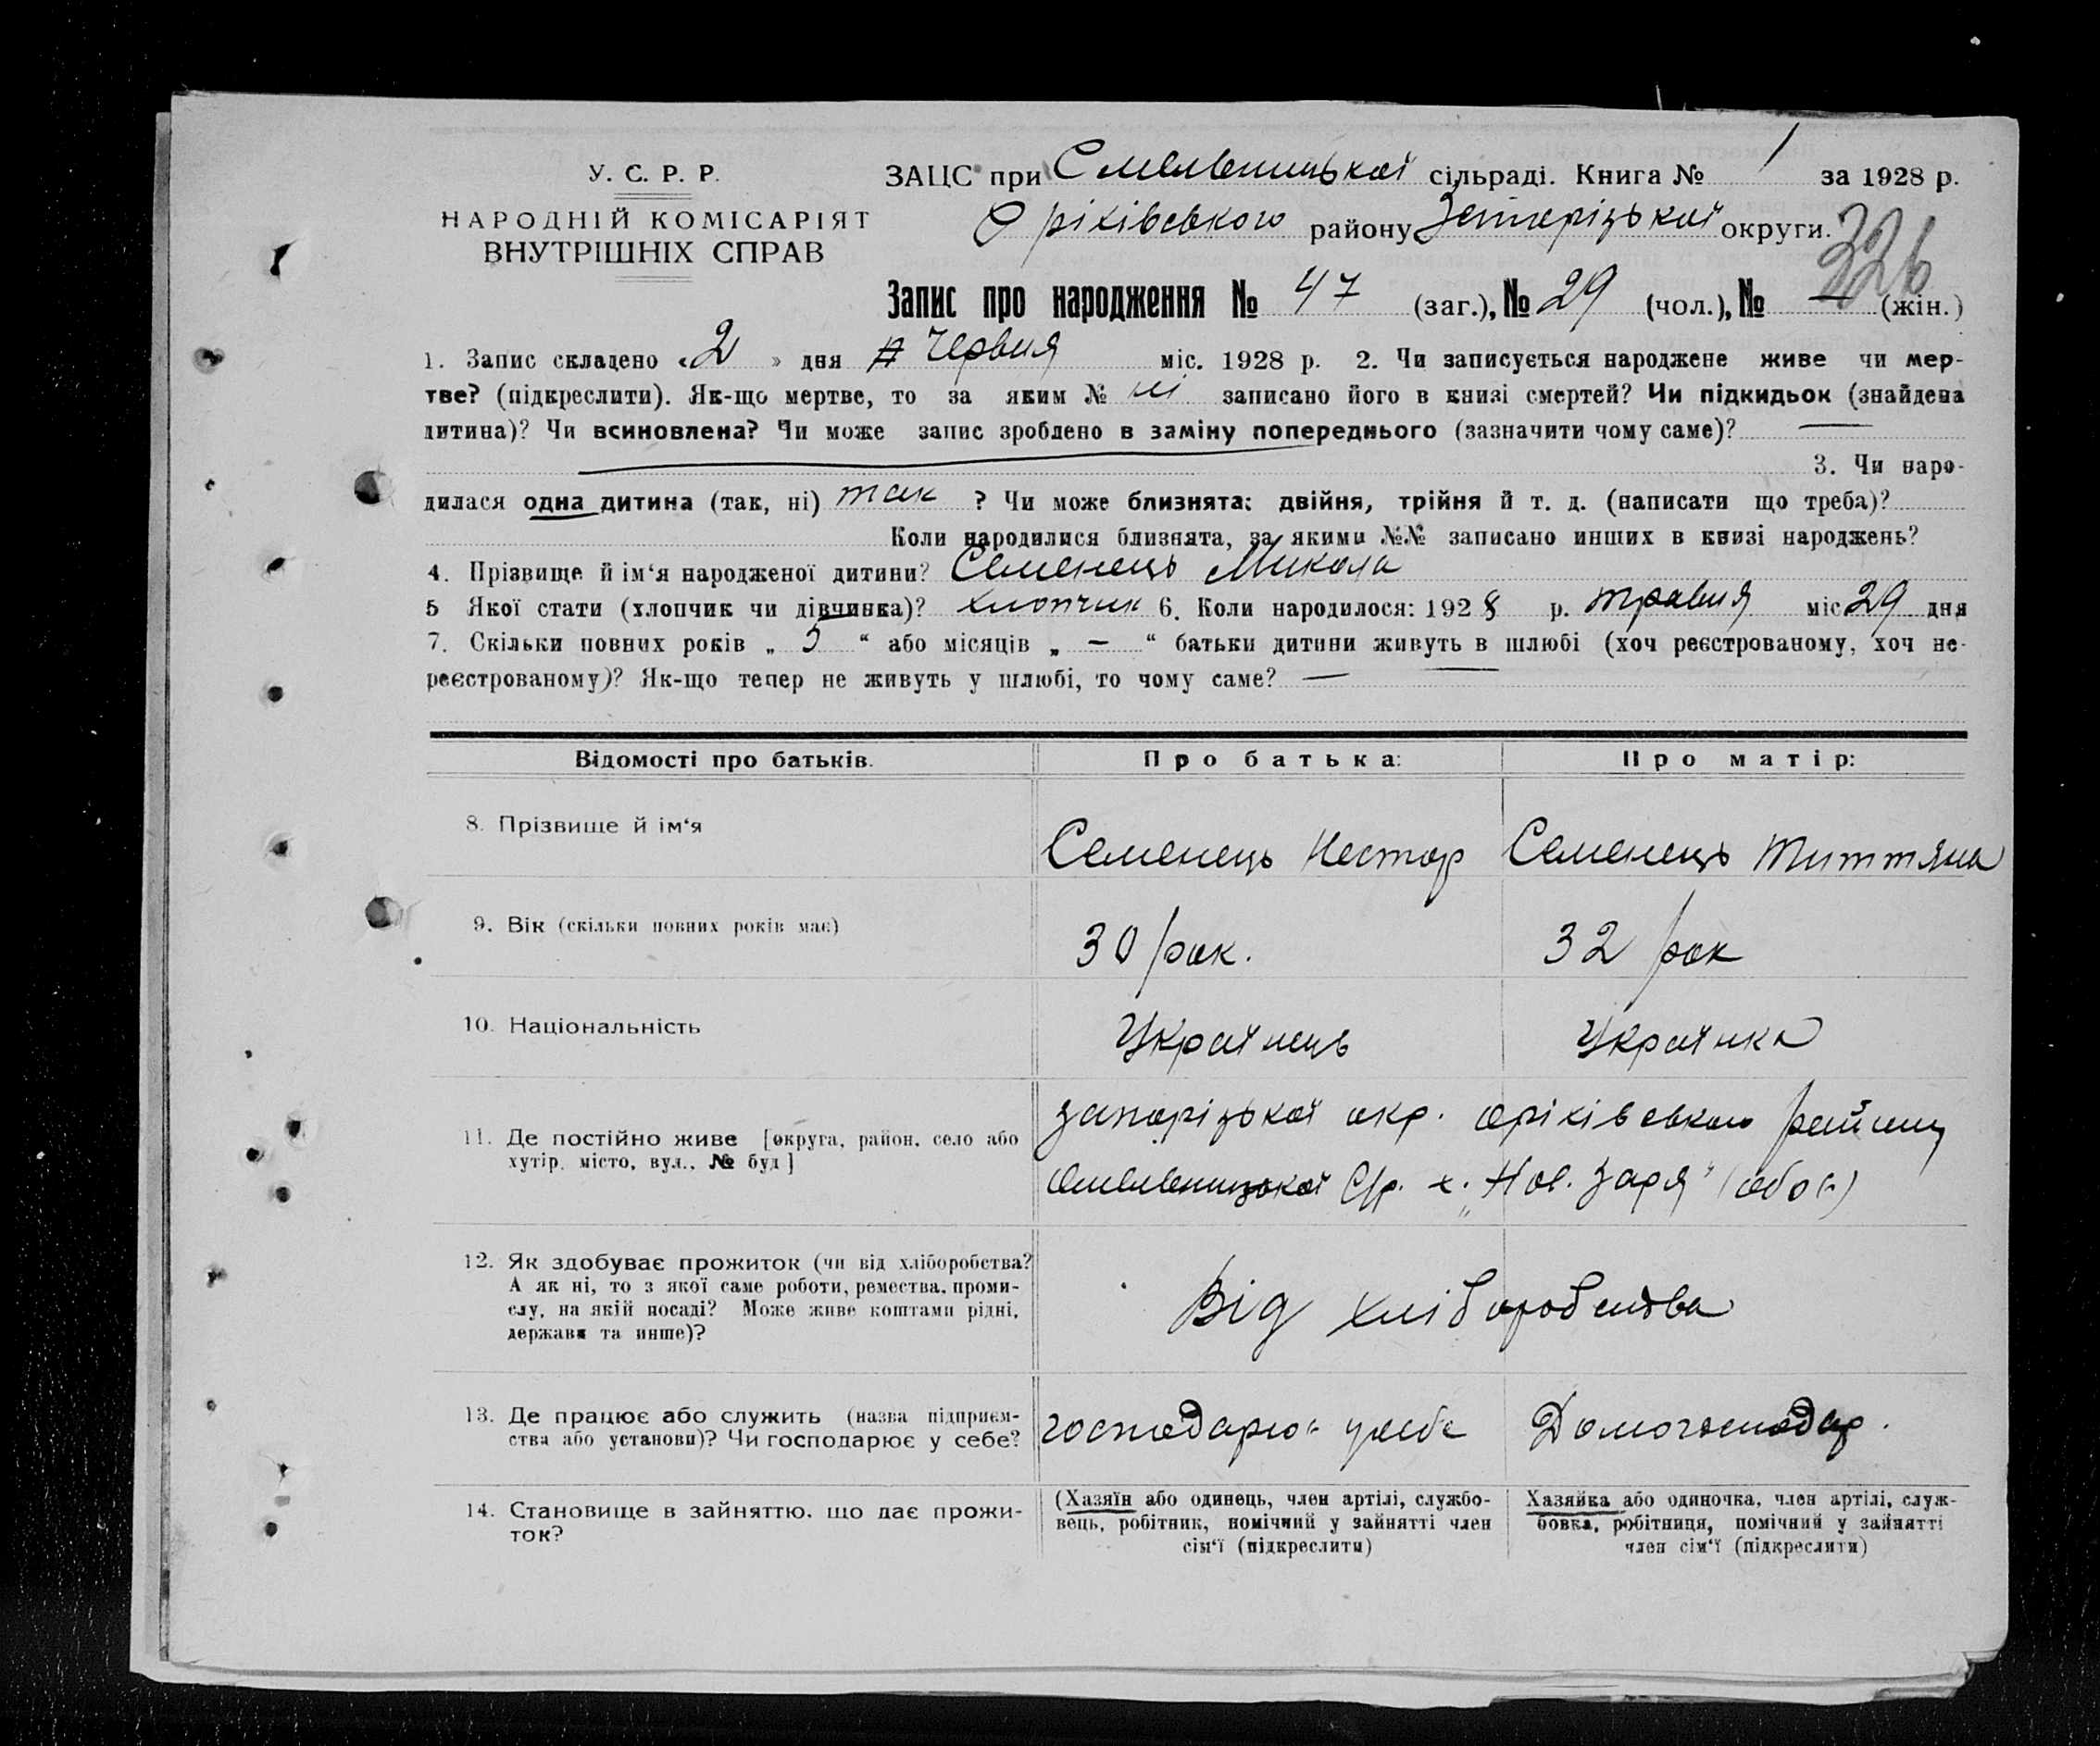 У. С. Р. Р.
НАРОДНІЙ КОМІСАРІЯТ
ВНУТРІШНІХ СПРАВ
ЗАЦС при сільраді. Книга № 1 за 1928 р.
Оріхівського району Запоріzької округи.
326
Запис про народження № 47 (заг.), № 29 (чол.), № — (жін.)
1. Запис складено «2» дня Червня міс. 1928 р. 2. Чи записується народжене живе чи мер-
тве? (підкреслити). Як-що мертве, то за яким № ні записано його в книзі смертей? Чи підкидьок (знайдена
дитина)? Чи всиновлена? Чи може запис зроблено в заміну попереднього (зазначити чому саме)? —
3. Чи наро-
дилася одна дитина (так, ні) так ? Чи може близнята: двійня, трійня й т. д. (написати що треба)?
Коли народилися близнята, за якими №№ записано инших в книзі народжень?
4. Прізвище й ім‘я народженої дитини? Семенець Микола
5 Якої стати (хлопчик чи дівчинка)? хлопчик 6. Коли народилося: 1928 р. травня міс 29 дня
7. Скільки повних років „ 5 “ або місяців „ — “ батьки дитини живуть в шлюбі (хоч реєстрованому, хоч не-
реєстрованому)? Як-що тепер не живуть у шлюбі, то чому саме? —
Відомості про батьків.
Про батька:
Про матір:
8. Прізвище й ім‘я
Семенець Нестор
Семенець Титтяна
9. Вік (скільки повних років має)
30 рок.
32 рок
10. Національність
Українець
Українка
11. Де постійно живе [округа, район, село або
хутір, місто, вул., № буд]
запорізької окр. оріхівського району
С/р. х. „Нов. Заря" (обоє)
12. Як здобуває прожиток (чи від хліборобства?
А як ні, то з якої саме роботи, ремества, проми-
слу, на якій посаді? Може живе коштами рідні,
держави та инше)?
Від хліборобства
13. Де працює або служить (назва підприєм-
ства або установи)? Чи господарює у себе?
господарює у себе
Домогосподар.
14. Становище в зайняттю, що дає прожи-
ток?
(Хазяїн або одинець, член артілі, службо-
вець, робітник, помічний у зайнятті член
сім‘ї (підкреслити)
Хазяйка або одиночка, член артілі, служ-
бовка, робітниця, помічний у зайнятті
член сім‘ї (підкреслити)